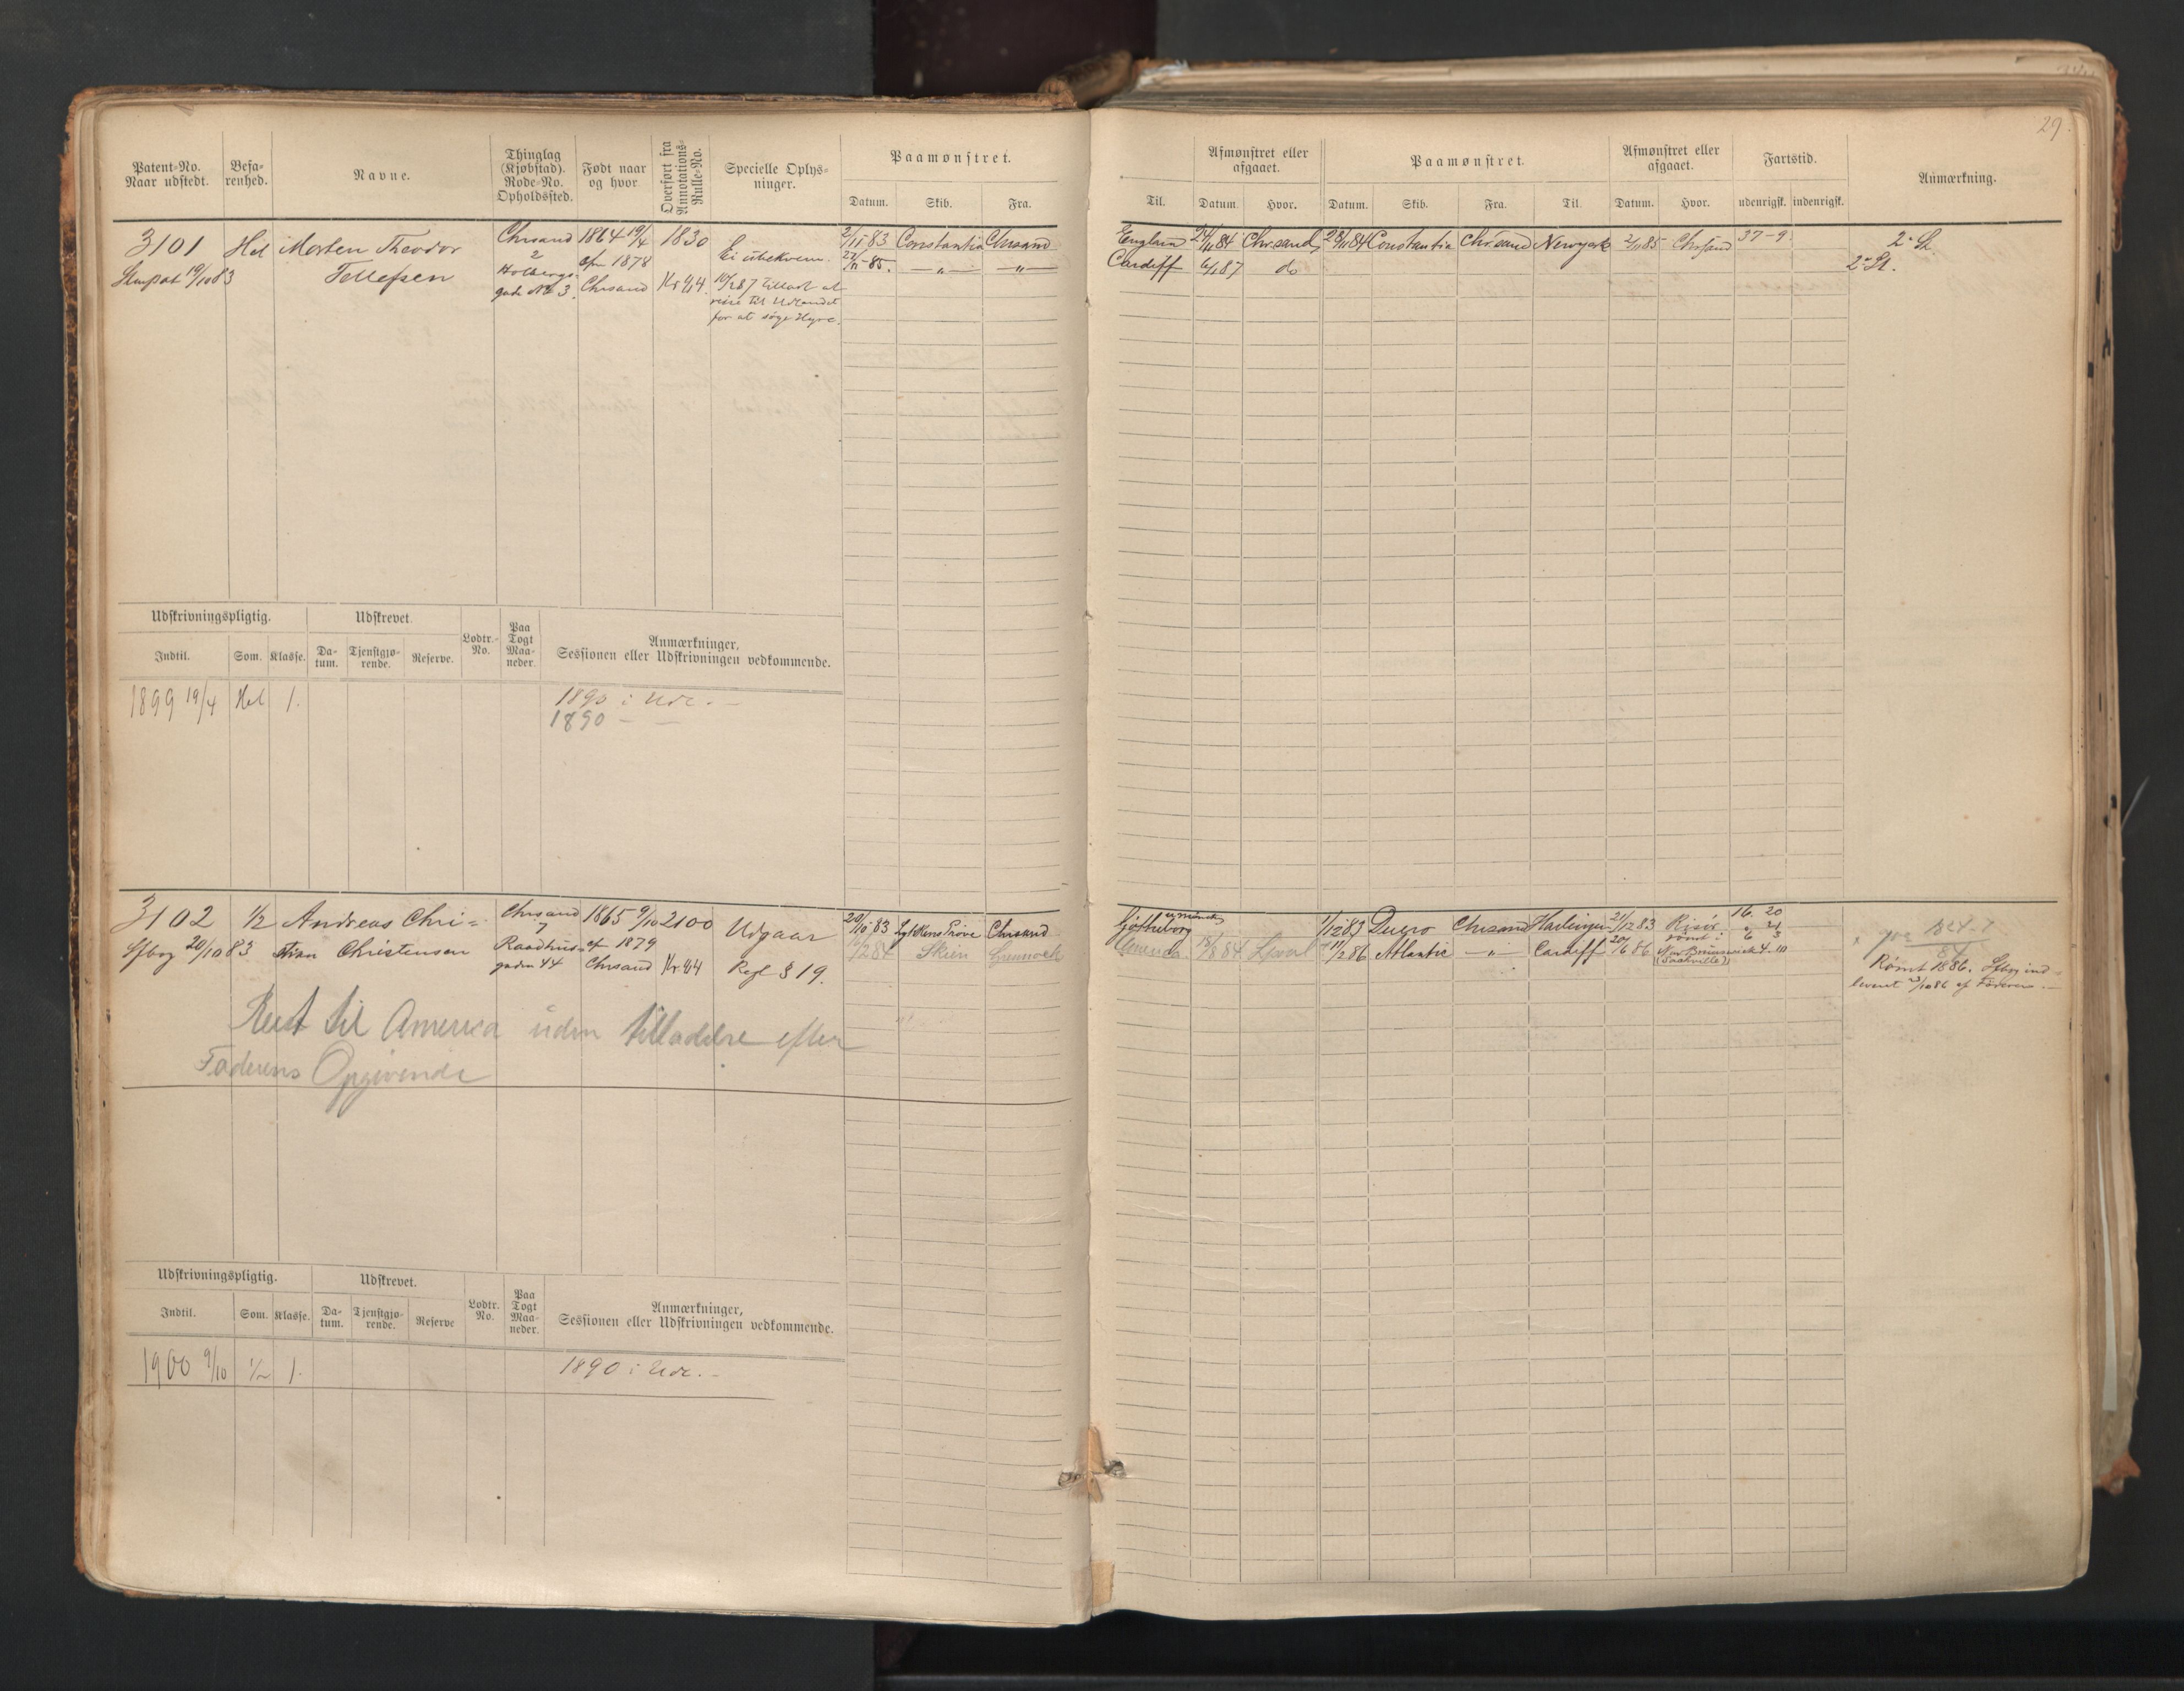 29.
Patent-No. Naar udstedt.
Befarenhed.
Navne.
Thinglag (Kjøbstad). Rode-No. Opholdssted.
Født naar og hvor
Overført fra Annotations-Rulle-No.
Specielle Oplysninger.
Paamønstret.
Datum. Skib. Fra.
Til.
Afmønstret eller afgaaet.
Datum. Hvor.
Paamønstret.
Datum. Skib. Fra. Til.
Afmønstret eller afgaaet.
Datum. Hvor.
Fartstid.
udenrigsk. indenrigsk.
Anmærkning.
3101 Hel Morten Theodor Chrsand 1864 19/4 1830
2 efr 1878 Ei ubekvem.
19/10 83 Tellefsen Holbergs- Chrsand Kr 44
gade No 3.
10/2 87 Tilladt at
reise til Udlandet
for at søge Hyre.
2/11 83 Constantia Chrsand England 24/11 84 Chrsand 28/11 84 Constantia Chrsand Newyork 2/11 85 Chrsand 37-9
27/11 85. —„— —„— Cardiff 6/1 87 do
Udskrivningspligtig. Udskrevet. Lodtr.-No. Paa Togt Maaneder. Anmærkninger, Sessionen eller Udskrivningen vedkommende.
Indtil. Som. Klasse. Datum. Tjenstgjørende. Reserve.
1899 19/4 Hel 1. 1890 i Udl. —
1890 — —
3102 1/2 Andreas Chri- Chrsand 1865 9/10 2100 Udgaar
7
Sfbog 20/10 83 stian Christensen Raadhus- efr 1879
gaden 44 Chrsand Kr 44 Regl § 19.
20/10 83 Chrsand Gjøtheborg 1/12 83 Duero Chrsand Harlingen 21/12 83 Risør 16. 20
Skien Greenock 11/2 86 Atlantic —„— Cardiff 20/6 86 rømt i New Brunswick 4. 10
(Sackville)
Rømt 1886. Sfbog ind-
leveret
Reist til America uden tilladelse efter
Faderens Opgivende
Udskrivningspligtig. Udskrevet. Lodtr. No. Paa Togt Maaneder. Anmærkninger, Sessionen eller Udskrivningen vedkommende.
Indtil. Som. Klasse. Datum. Tjenstgjørende. Reserve
1900 9/10 1/2 1. 1890 i Udl. —